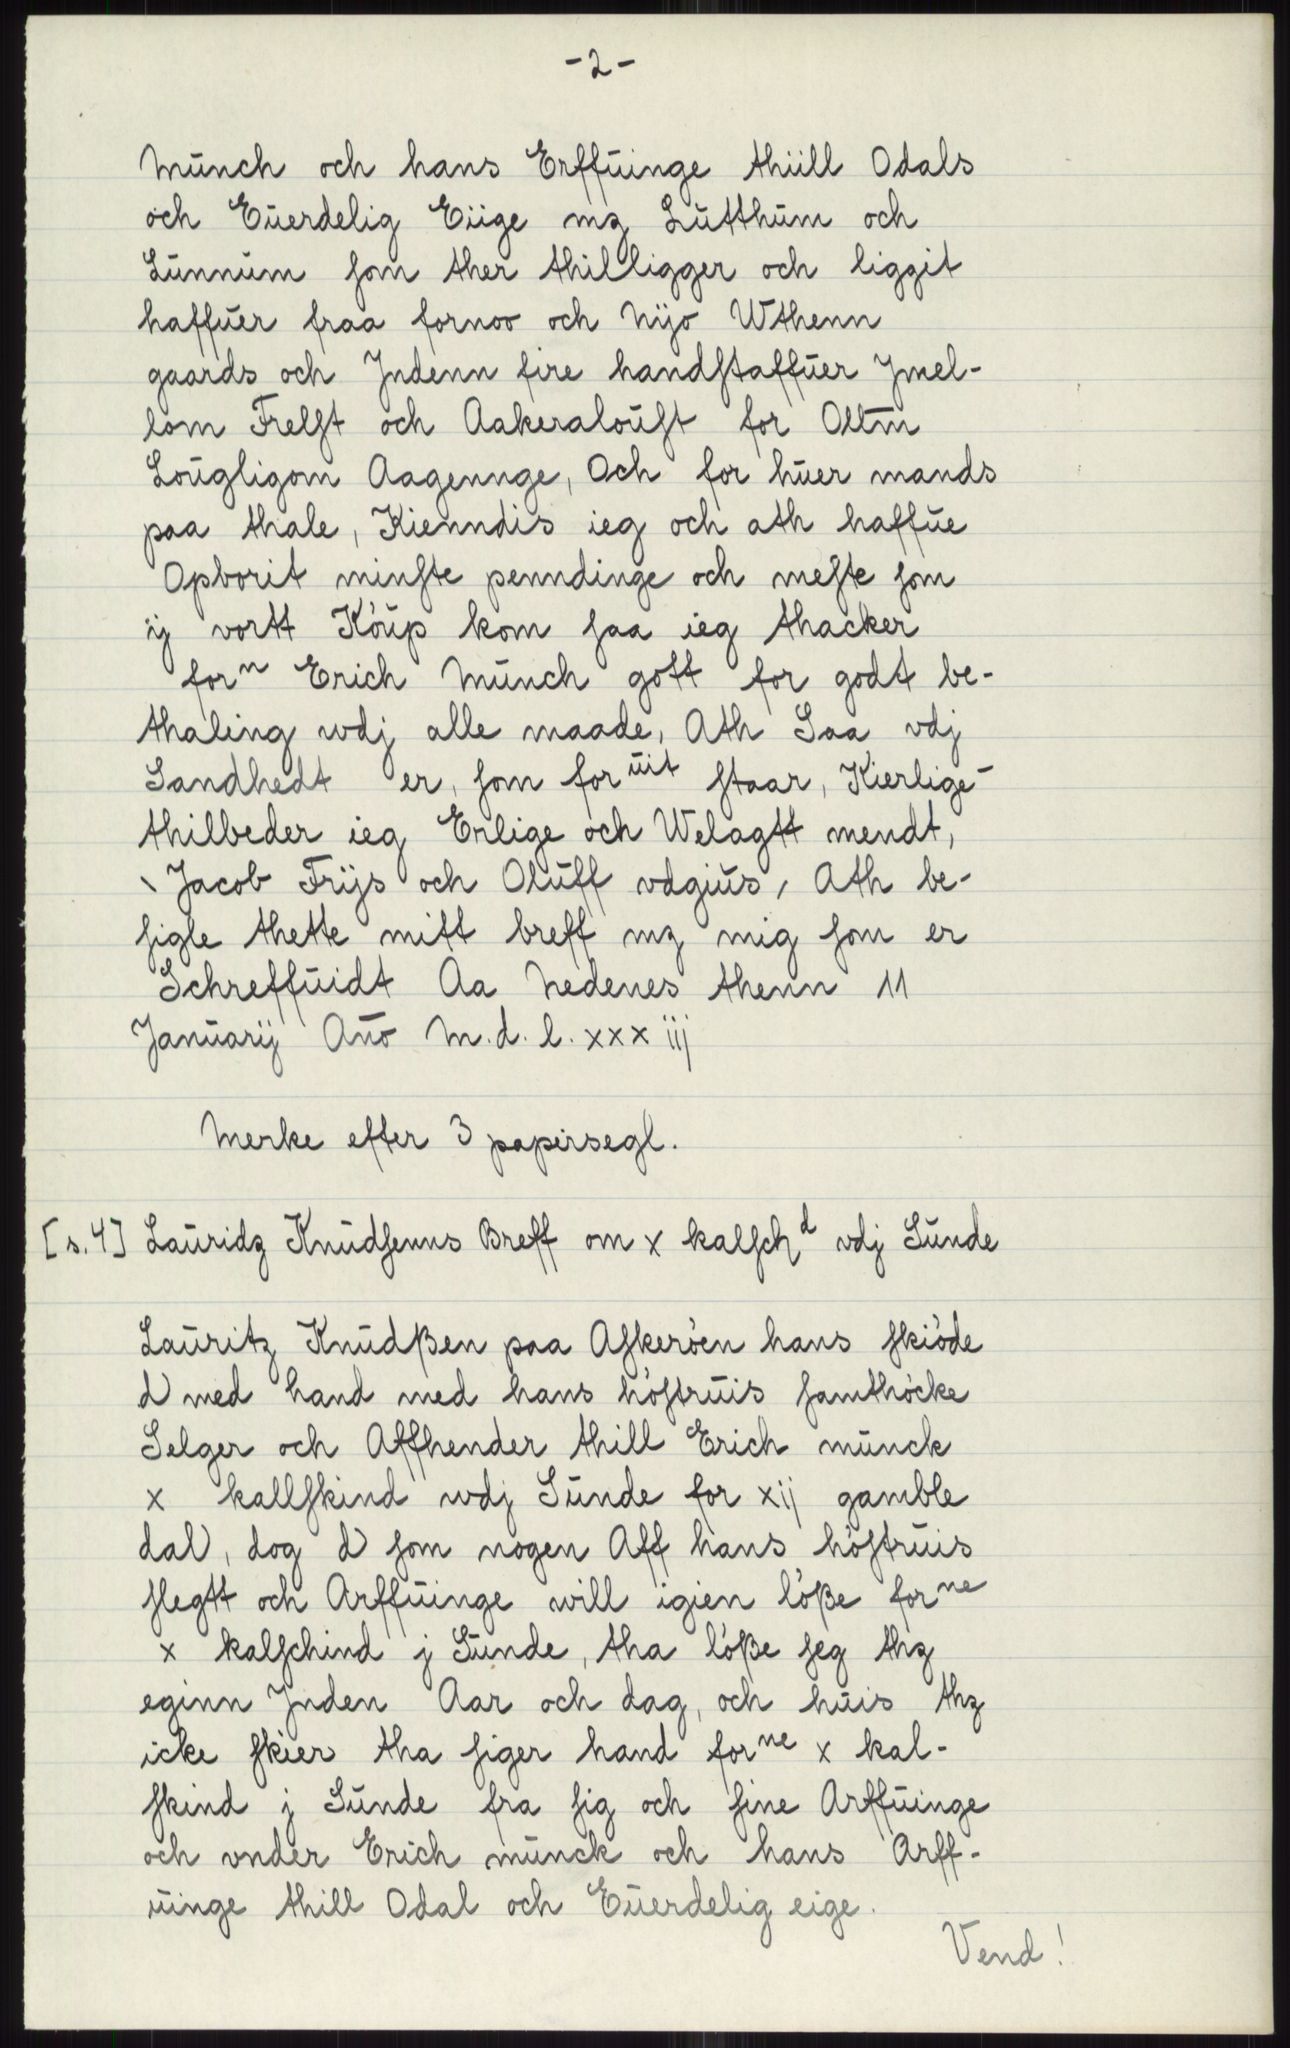 -2-
Munch och hans Erffuinge thiill Odals
och Euerdelig Eiige mz Lutthum och
Lunnum som ther thilligger och liggit
haffuer fraa fornoo och Nÿo Wthenn
gaards och Jndenn fire handstaffuer Jmel-
lom Frelst och Aakeraloust for Oltm
Lougligom Aagennge, Och for huer mands
paa thale, Kienndis ieg och ath haffue
Opborit minste penndinge och meste som
ij vortt Kóup kom saa ieg thacker
forⁿ Erich Munch gott for godt be-
thaling wdj alle maade, Ath Saa vdj
Sandhedt er, som for uit staar, Kierlige-
thilbeder ieg Erlige och Welagtt mendt,
Jacob Frijs och Oluff vdgius, Ath be-
sigle thette mitt breff mz mig som er
Schreffuidt Aa Nedenes thenn 11
Januarij Año M.d.l.xxxiij
Merke efter 3 papirsegl.
[s.4] Lauridz Knudsenns Breff om x kalschᵈ vdj Sunde
Lauritz Knudßen paa Askeröen hans skiöde
d med hand med hans höstruis samthöcke
Selger och Affhender thill Erich munck
x kallskind wdj Sunde for xij gamble
dal, dog d som nogen Aff hans höstruis
slegtt och Arffuinge will igien löße forⁿᵉ
x kalschind j Sunde, tha löße seg thz
eginn Jnden Aar och dag, och huis thz
icke skier tha siger hand forⁿᵉ x kal-
skind j Sunde fra sig och sine Arffuinge
och vnder Erich munck och hans Arff-
uinge thill Odal och Euerdelig eige.
Vend!